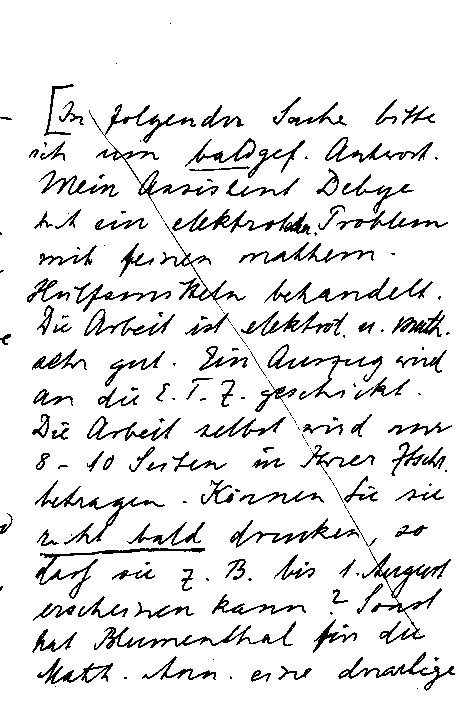 [In folgender Sache bitte
ich um baldgef. Antwort.
Mein Assistent Debye
hat ein elektrotechn. Problem
mit feinen mathem.
Hülfsmitteln behandelt.
Die Arbeit ist elektrot. u. math.
sehr gut. Ein Auszug wird
an die E. T. Z. geschickt.
Die Arbeit selbst wird nur
8-10 Seiten in Ihrer Ztschr.
betragen. Können Sie sie
recht bald drucken, so
daß sie z. B. bis 1. August
erscheinen kann? Sonst
hat Blumenthal für die
Math. Ann. eine derartige